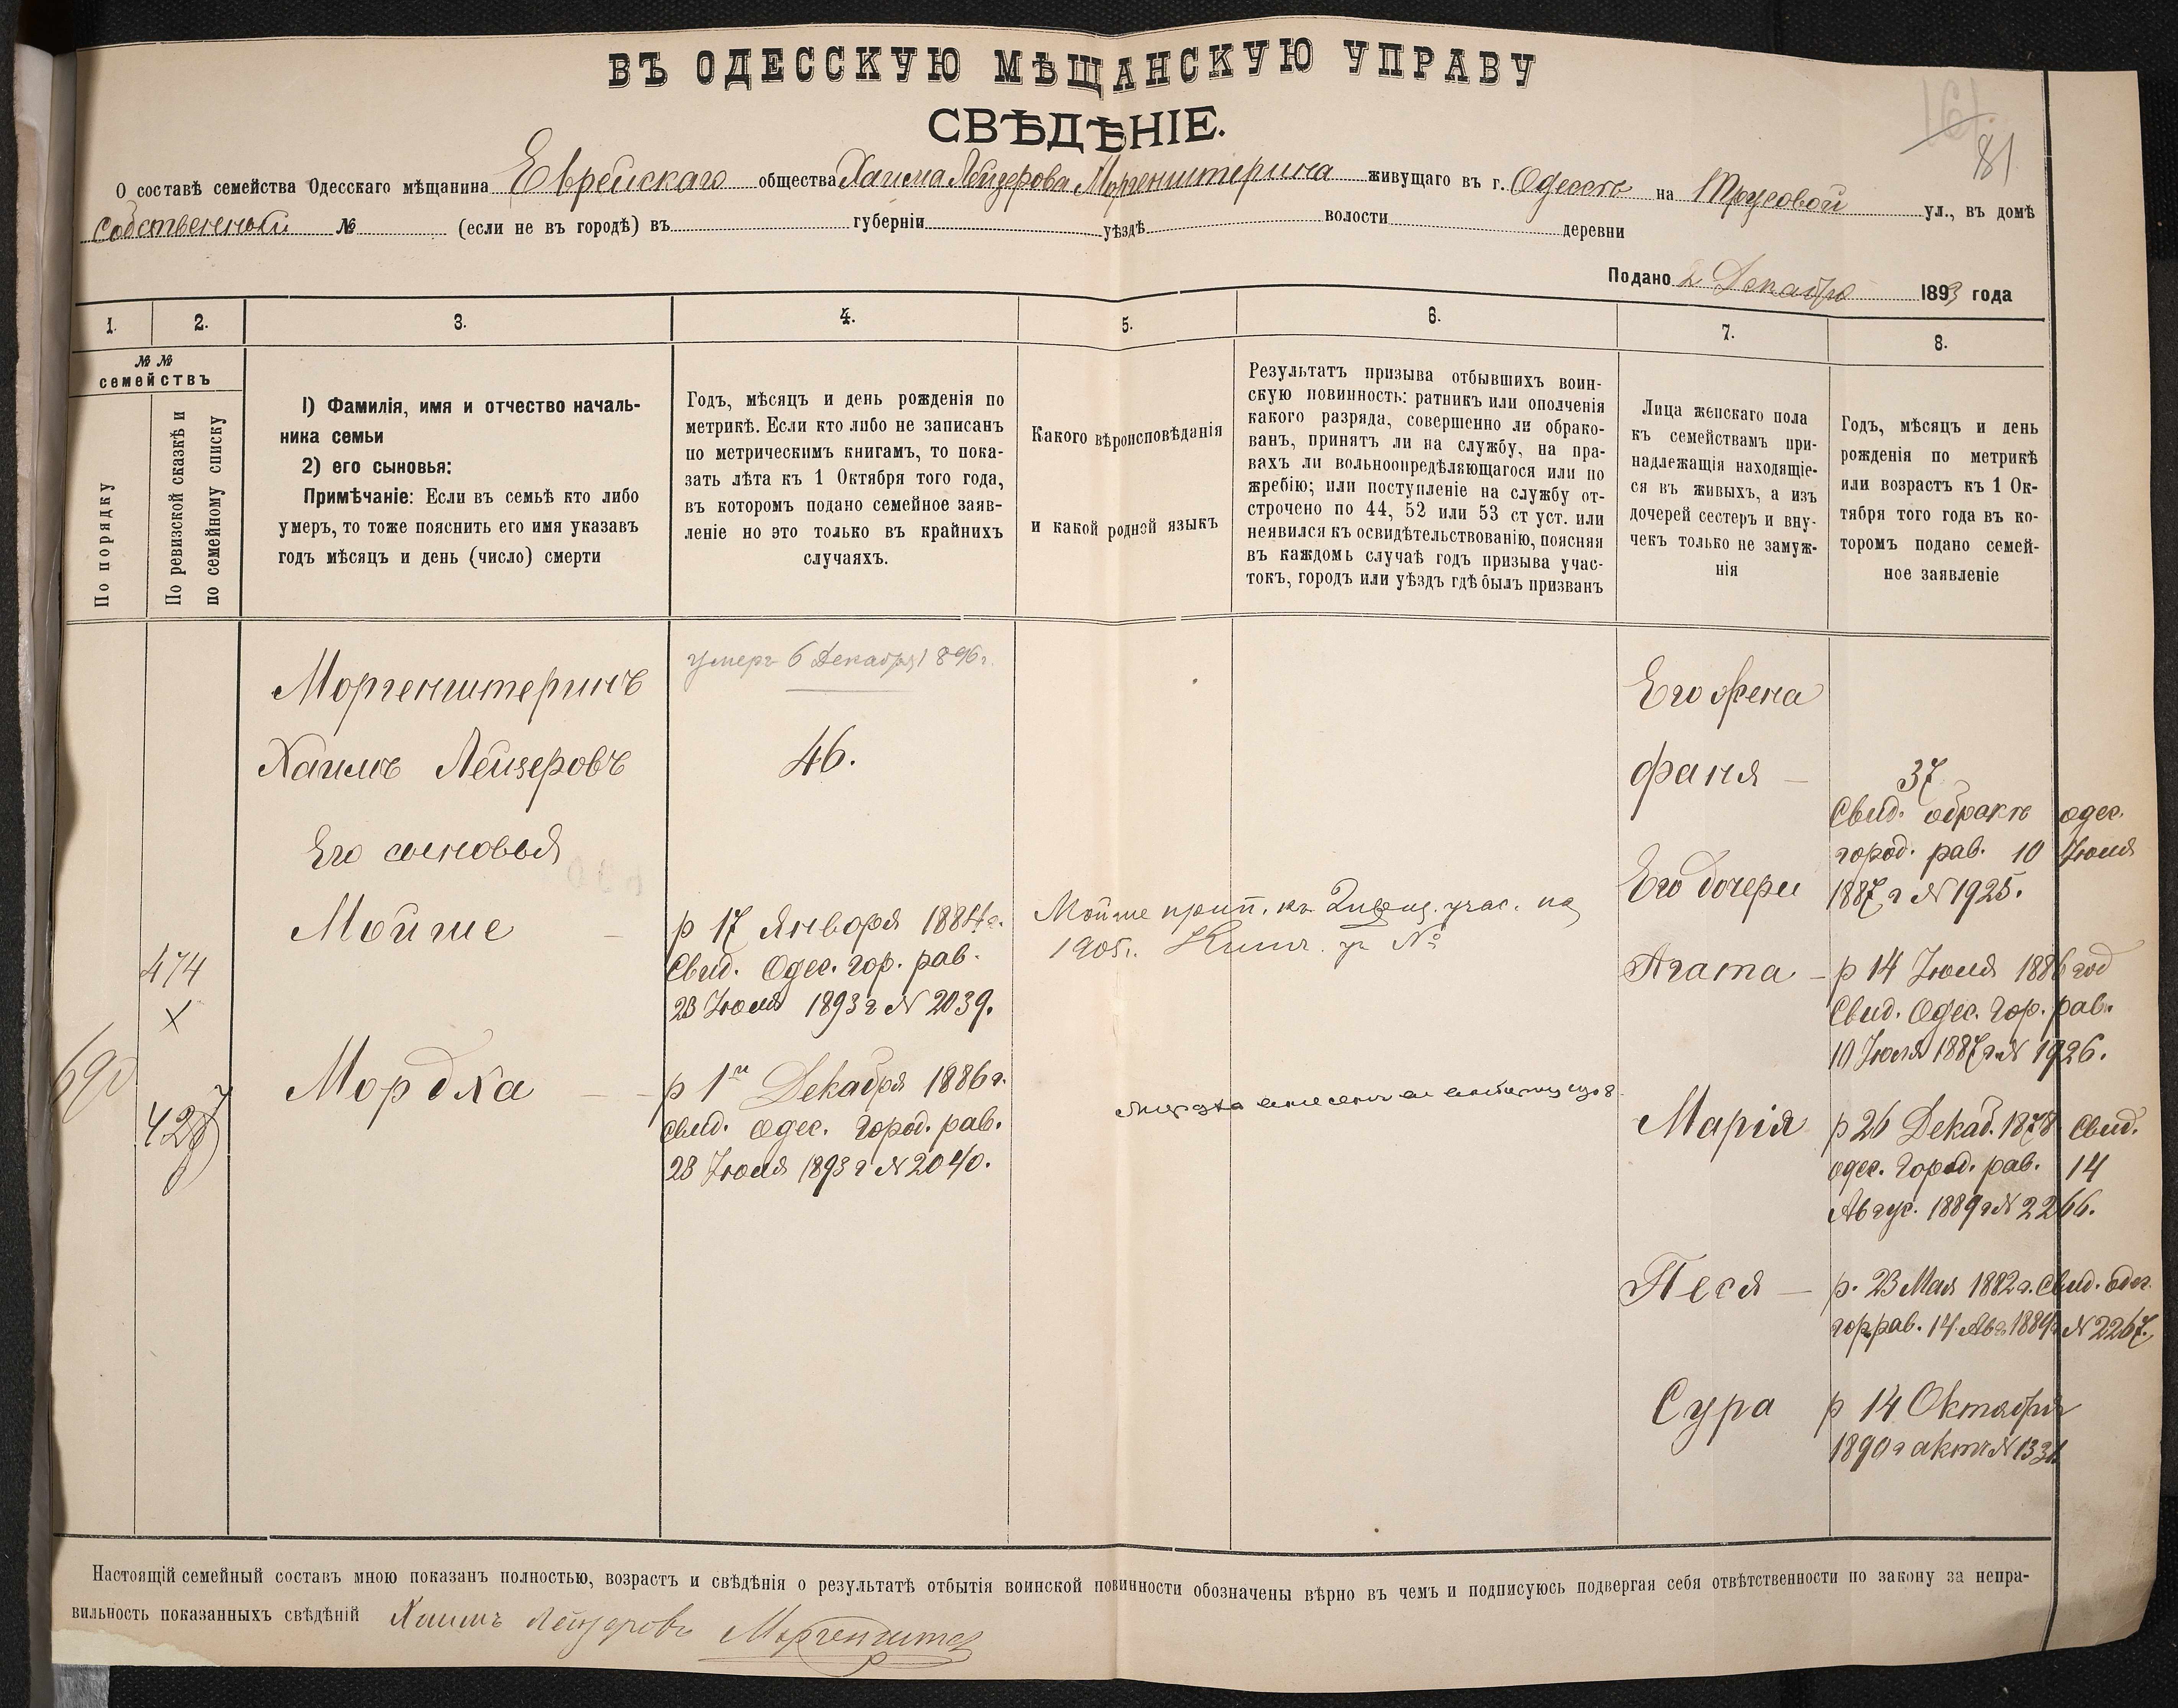 ВЪ ОДЕССКУЮ МѢЩАНСКУЮ УПРАВУ
СВѢДѢНІЕ.
161.
81
О составѣ семейства Одесскаго мѣщанина Еврейскаго общества Хаима Лейзерова Моргенштерина живущаго въ г. Одессѣ на Трусовой ул., въ домѣ
собственный № (если не въ городѣ) въ губерніи уѣздѣ волости деревни
Подано 2 Декабря 1893 года
1. 2. 3. 4. 5. 6. 7. 8.
№ №
семействъ
По порядку
По ревизской сказкѣ и
по семейному списку
1) Фамилія, имя и отчество началь-
ника семьи
2) его сыновья:
Примѣчаніе: Если въ семьѣ кто либо
умеръ, то тоже пояснить его имя указавъ
годъ мѣсяцъ и день (число) смерти
Годъ, мѣсяцъ и день рожденія по
метрикѣ. Если кто либо не записанъ
по метрическимъ книгамъ, то пока-
зать лѣта къ 1 Октября того года,
въ которомъ подано семейное заяв-
леніе но это только въ крайнихъ
случаяхъ.
Какого вѣроисповѣданія
и какой родной языкъ
Результатъ призыва отбывшихъ воин-
скую повинность: ратникъ или ополченія
какого разряда, совершенно ли обрако-
ванъ, принятъ ли на службу, на пра-
вахъ ли вольноопредѣляющагося или по
жребію; или поступленіе на службу от-
строчено по 44, 52 или 53 ст уст. или
неявился къ освидѣтельствованію, поясняя
въ каждомъ случаѣ годъ призыва учас-
токъ, городъ или уѣздъ гдѣ былъ призванъ
Лица женскаго пола
къ семействамъ при-
надлежащія находящіе-
ся въ живыхъ, а изъ
дочерей сестеръ и вну-
чекъ только не замуж-
нія
Годъ, мѣсяцъ и день
рожденія по метрикѣ
или возрастъ къ 1 Ок-
тября того года въ ко-
торомъ подано семей-
ное заявленіе
690
474
х
427
Моргенштеринъ
Хаимъ Лейзеровъ
Его сыновья
Мойше
Мордха
умеръ 6 Декабря 1896 г.
46.
р 17 Января 1884 г.
Свид. Одес. гор. рав.
23 Іюля 1893 г № 2039.
р 1го Декабря 1886 г.
свид. одес. город. рав.
28 Іюля 1893 г № 2040.
Мойше прип. къ 2 учас. на
1905 г.
Мордха
Его жена
Фаня —
Его дочери
Агата —
Марія
Песя —
Сура
37
Свид. о бракѣ одес.
город. рав. 10 Іюля
1887 г № 1925.
р 14 Іюля 1886 год
Свид. Одес. Гор. рав.
10 Іюля 1887 г № 1926.
р 26 Декаб. 1878 Свид.
одес. Город. рав. 14
Авгус. 1889 г № 2266.
р. 23 Мая 1882 г. Свид. Одес.
гор рав. 14 Авг 1889 г № 2267.
р 14 Октября
1890 г актъ №
Настоящій семейный составъ мною показанъ полностью, возрастъ и свѣдѣнія о результатѣ отбытія воинской повинности обозначены вѣрно въ чемъ и подписуюсь подвергая себя отвѣтственности по закону за непра-
вильность показанныхъ свѣдѣній Хаимъ Лейзеровъ Моргенштер